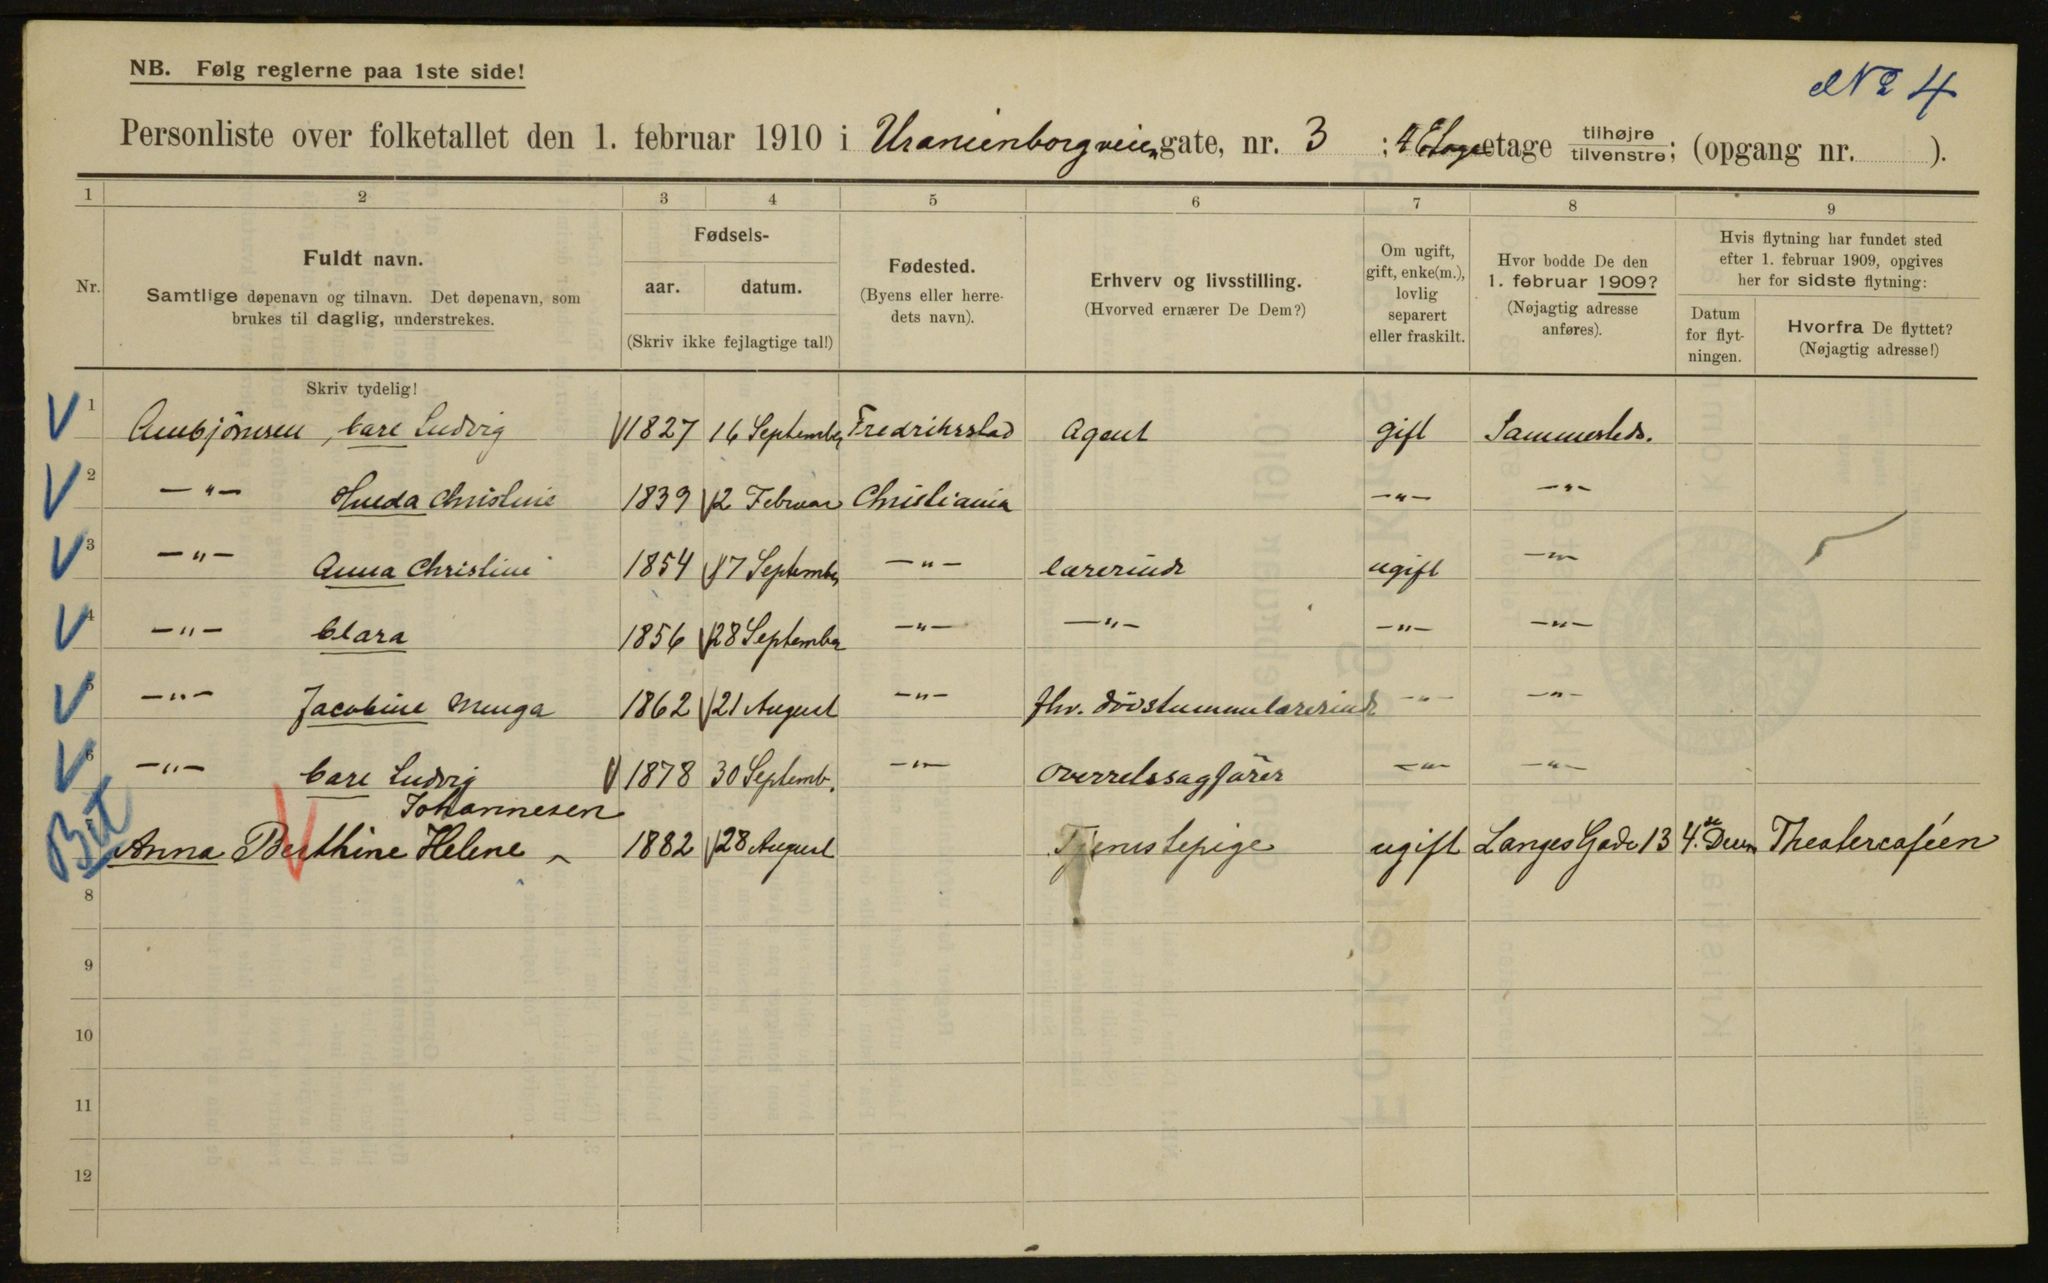 NB. Følg reglerne paa 1ste side!
No 4
Personliste over folketallet den 1. februar 1910 i Uranienborgveien gate, nr. 3 ; 4 Etage etage tilhøjre tilvenstre; (opgang nr. ).
1 2 3 4 5 6 7 8 9
Nr.
Fuldt navn.
Samtlige døpenavn og tilnavn. Det døpenavn, som
brukes til daglig, understrekes.
Fødsels-
aar. datum.
(Skriv ikke fejlagtige tal!)
Fødested.
(Byens eller herre-
dets navn).
Erhverv og livsstilling.
(Hvorved ernærer De Dem?)
Om ugift,
gift, enke(m.),
lovlig
separert
eller fraskilt.
Hvor bodde De den
1. februar 1909?
(Nøjagtig adresse
anføres).
Hvis flytning har fundet sted
efter 1. februar 1909, opgives
her for sidste flytning:
Datum
for flyt-
ningen.
Hvorfra De flyttet?
(Nøjagtig adresse!)
Skriv tydelig!
1 Ambjörnsen, Carl Ludvig 1827 16 September Fredriksstad Agent gift Sammesteds.
2 —"— Hulda Christine 1839 2 Februar Christiania —"— —"—
3 —"— Anna Christine 1854 17 September —"— Lærerinde ugift —"—
4 —"— Clara 1856 28 September —"— —"— —"— —"—
5 —"— Jacobine Menga 1862 21 August —"— fhv. Dövstummelærerinde —"— —"—
6 —"— Carl Ludvig 1878 30 Septemb. —"— Overretssagförer —"— —"—
Johannesen
Bet Anna Berthine Helene 1882 28 August Tjenestepige ugift Langes Gade 13 4. Decm Theatercaféen
8
9
10
11
12